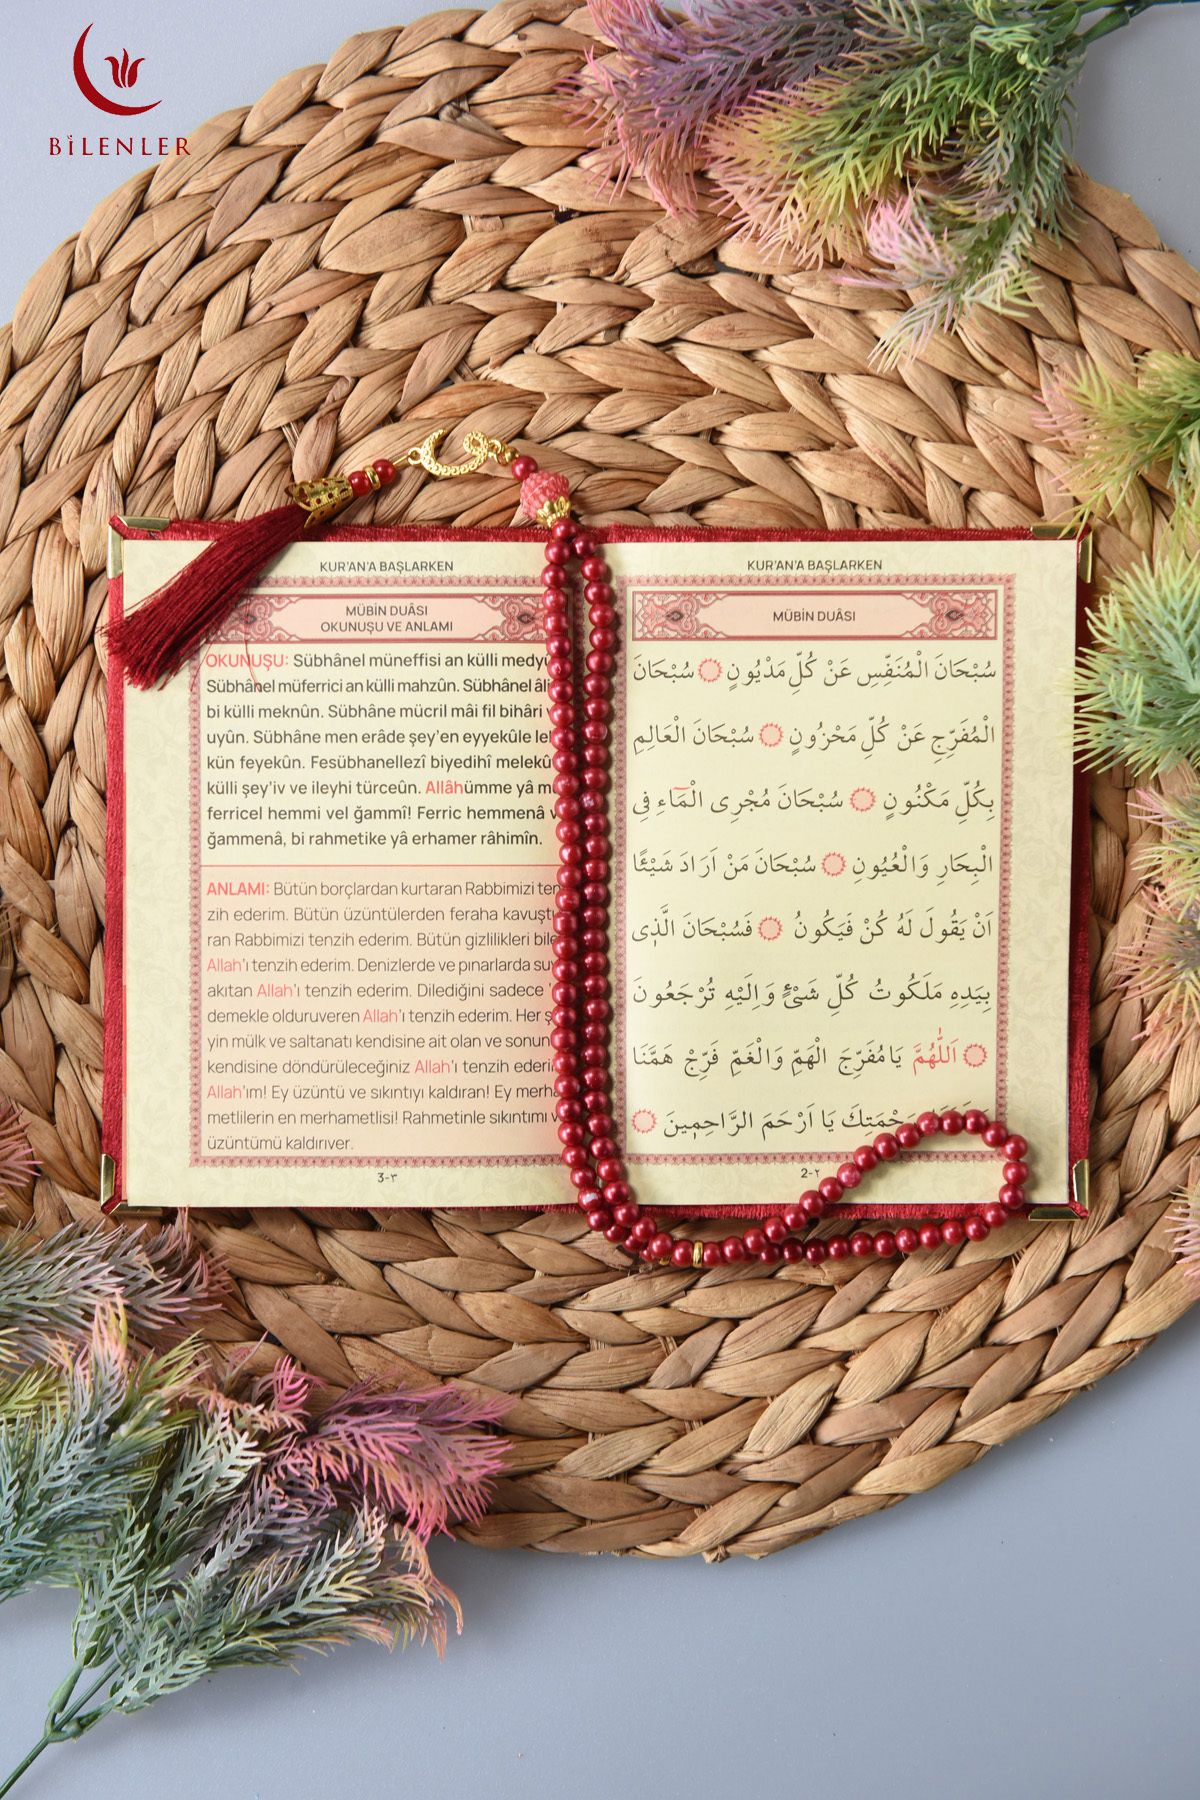 BİLENLER
KUR'AN'A BAŞLARKEN
MÜBİN DUÂSI
OKUNUŞU VE ANLAMI
OKUNUŞU: Sübhânel müneffisi an külli
Sübhânel müferrici an külli mahzûn. Sübhânel
bi külli meknûn. Sübhâne mücril mâi fil bihâri
uyûn. Sübhâne men erâde şey'en eyyekûle
kün feyekûn. Fesübhanellezî biyedihî
külli şey'iv ve ileyhi türceûn. Allâhümme yâ
ferricel hemmi vel ğammî! Ferric hemmenâ
ğammenâ, bi rahmetike yâ erhamer râhimîn.
ANLAMI: Bütün borçlardan kurtaran Rabbimizi ten
zih ederim. Bütün üzüntülerden feraha kavuştu
ran Rabbimizi tenzih ederim. Bütün gizlilikleri
Allah'ı tenzih ederim. Denizlerde ve pınarlarda
akıtan Allah'ı tenzih ederim. Dilediğini sadece
demekle olduruveren Allah'ı tenzih ederim. Her
yin mülk ve saltanatı kendisine ait olan ve
kendisine döndürüleceğiniz Allah'ı tenzih
Allah'ım! Ey üzüntü ve sıkıntıyı kaldıran! Ey
metlilerin en merhametlisi! Rahmetinle sıkıntımı
üzüntümü kaldırıver.
3-٣
KUR'AN'A BAŞLARKEN
MÜBİN DUÂSI
سُبْحَانَ الْمُنَفِّسِ عَنْ كُلِّ مَدْيُونٍ سُبْحَانَ
الْمُفَرِّجِ عَنْ كُلِّ مَحْزُونٍ سُبْحَانَ الْعَالِمِ
بِكُلِّ مَكْنُونٍ سُبْحَانَ مُجْرِى الْمَٓاءِ فِى
الْبِحَارِ وَالْعُيُونِ سُبْحَانَ مَنْ اَرَادَ شَيْئًا
اَنْ يَقُولَ لَهُ كُنْ فَيَكُونُ فَسُبْحَانَ الَّذٖى
بِيَدِهِ مَلَكُوتُ كُلِّ شَىْءٍ وَاِلَيْهِ تُرْجَعُونَ
اَللّٰهُمَّ يَا مُفَرِّجَ الْهَمِّ وَالْغَمِّ فَرِّجْ هَمَّنَا
يَا اَرْحَمَ الرَّاحِمٖينَ
2-٢